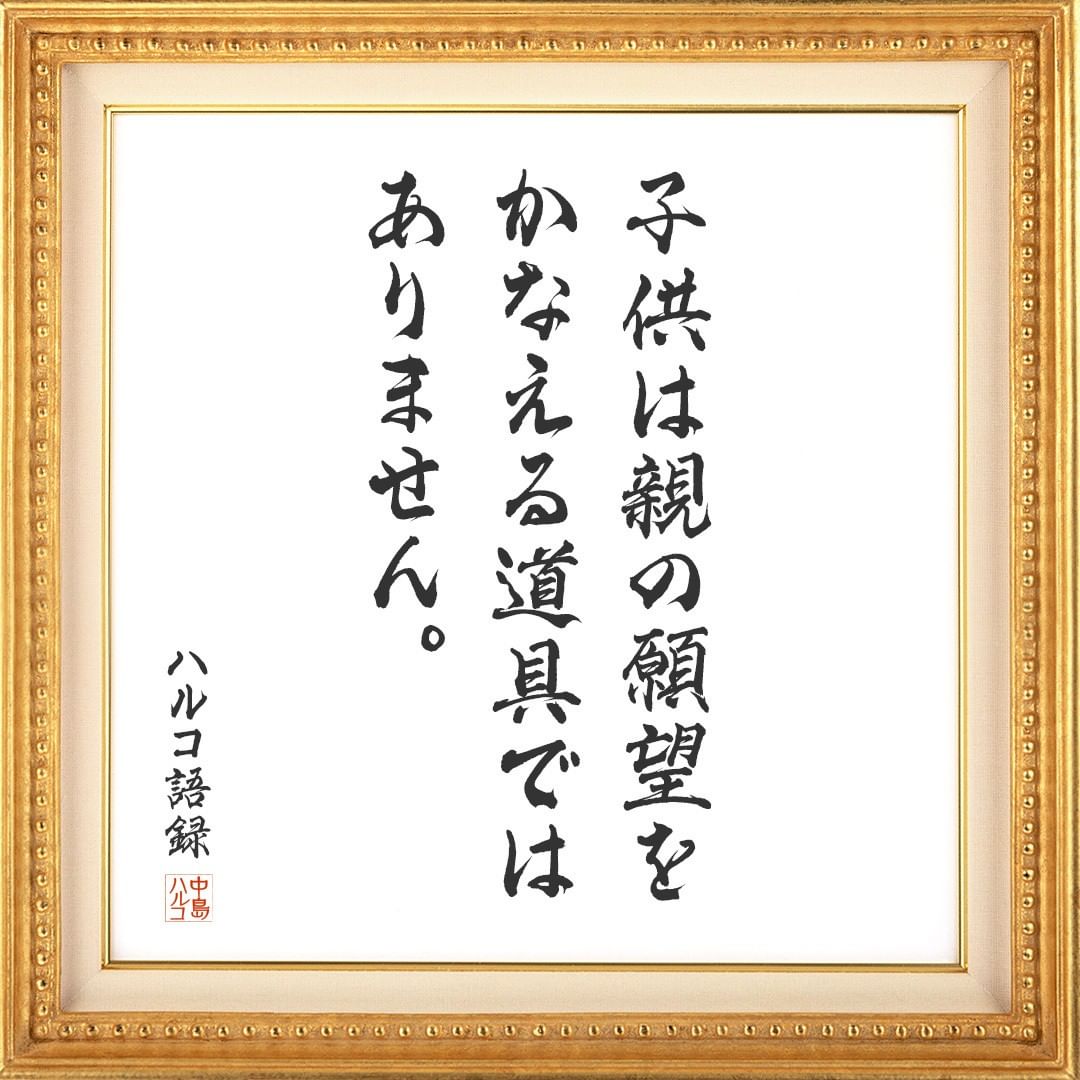 子供は親の願望を
かなえる道具では
ありません。
ハルコ語録
中島
ハルコ